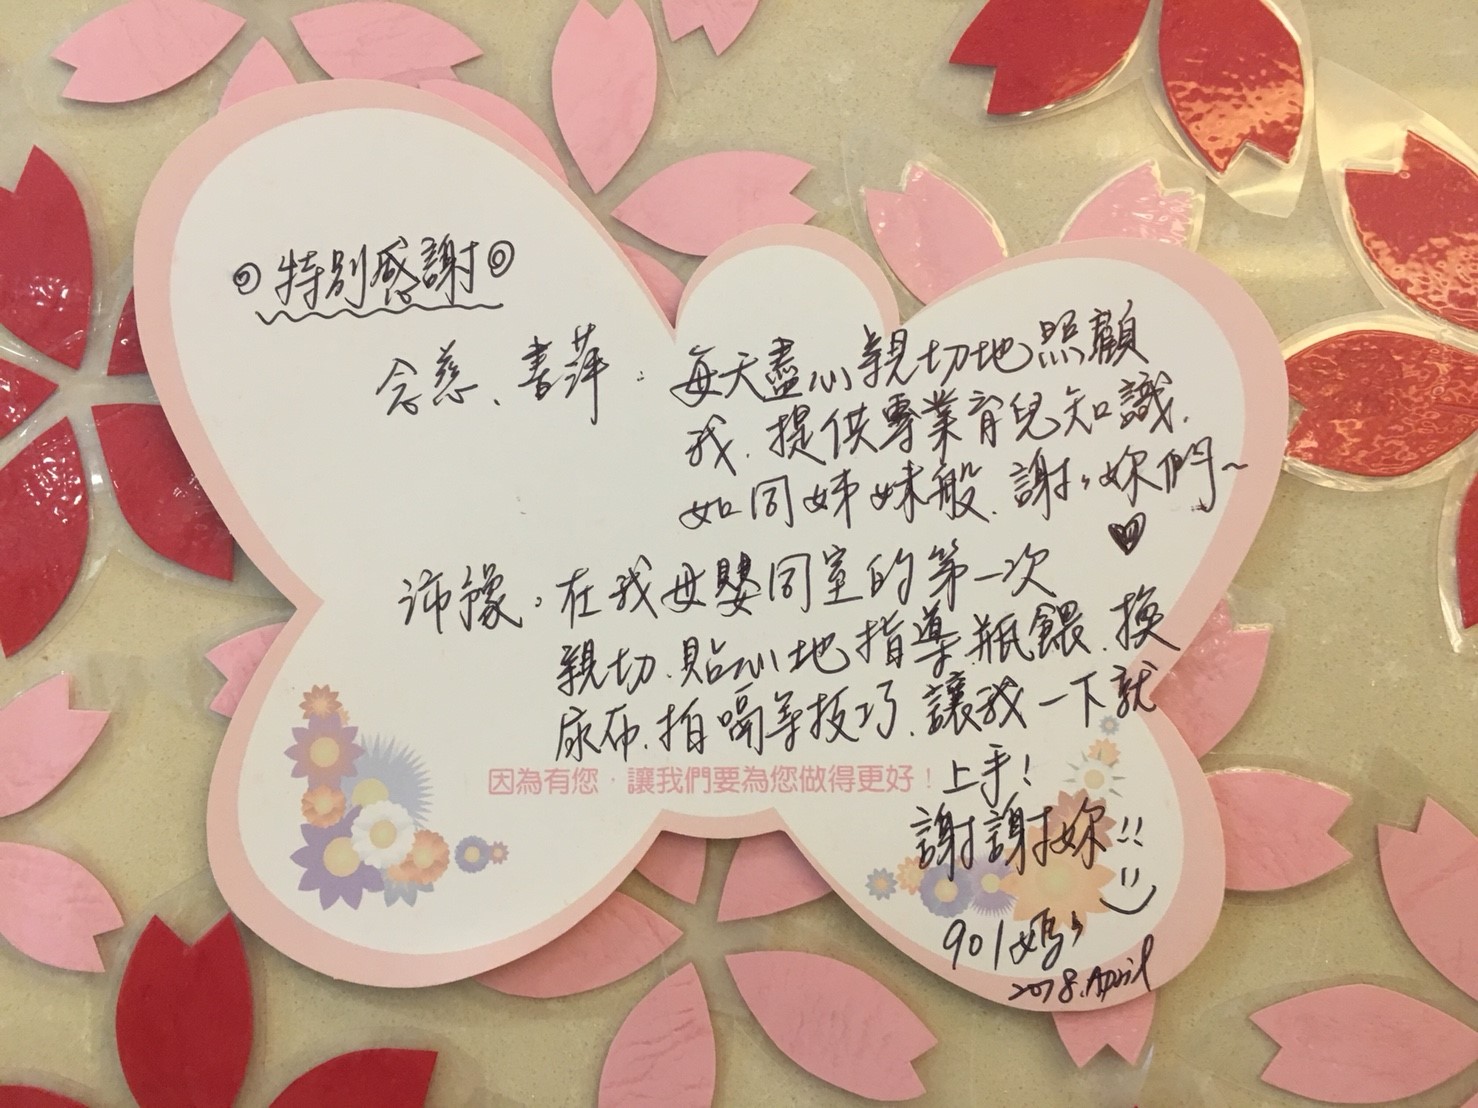 ◎特別感謝◎
念慈、書萍：每天盡心親切地照顧
我、提供專業育兒知識、
如同姊妹般、謝謝妳們~
♥
沛緣：在我母嬰同室的第一次
親切、貼心地指導瓶餵、換
尿布、拍嗝等技巧、讓我一下就
上手！
因為有您，讓我們要為您做得更好！
謝謝妳!!
901媽媽
2018.April